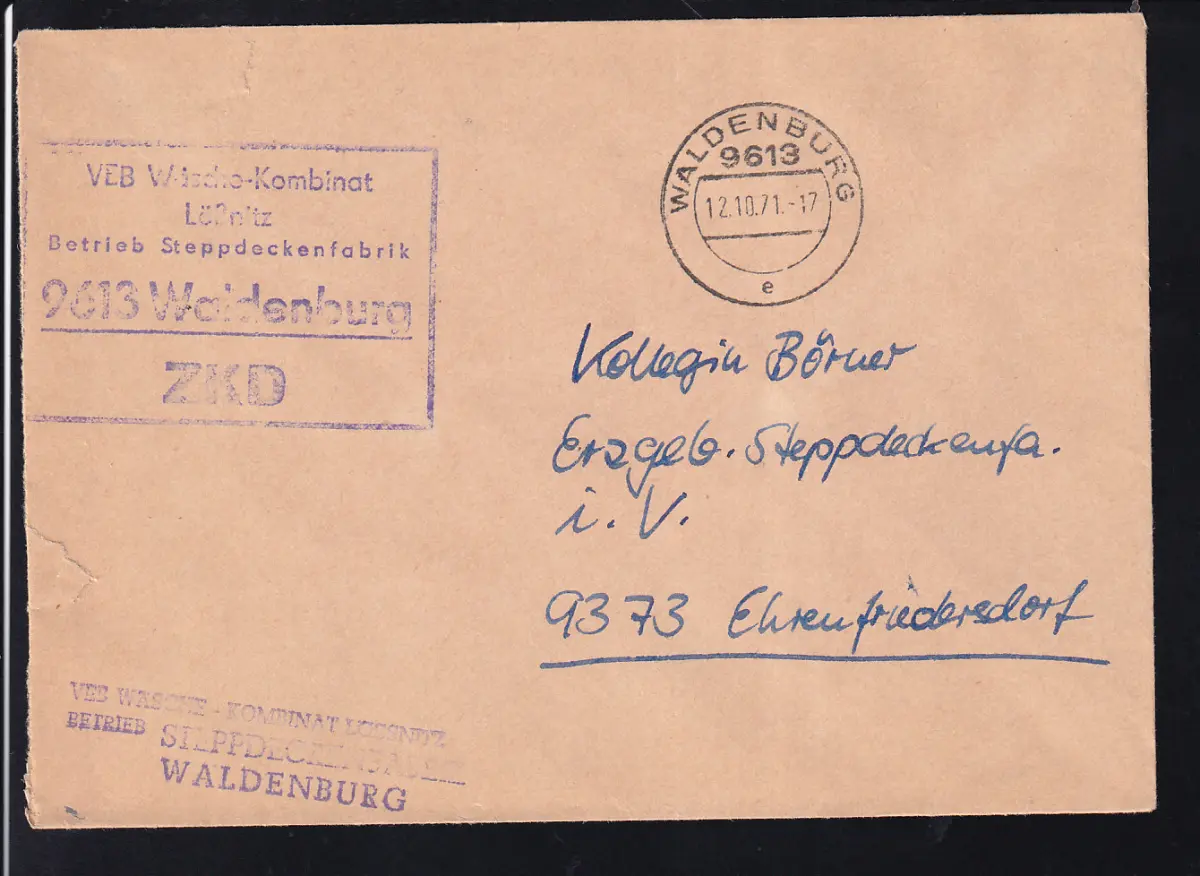 VEB Wäsche-Kombinat
Lößnitz
Betrieb Steppdeckenfabrik
9613 Waldenburg
ZKD
WALDENBURG
9613
12.10.71.-17
e
Kollegin Börner
Erzgeb. Steppdeckenfa.
i. V.
9373 Ehrenfriedersdorf
VEB WÄSCHE-KOMBINAT LÖSSNITZ
BETRIEB STEPPDECKENFABRIK
WALDENBURG